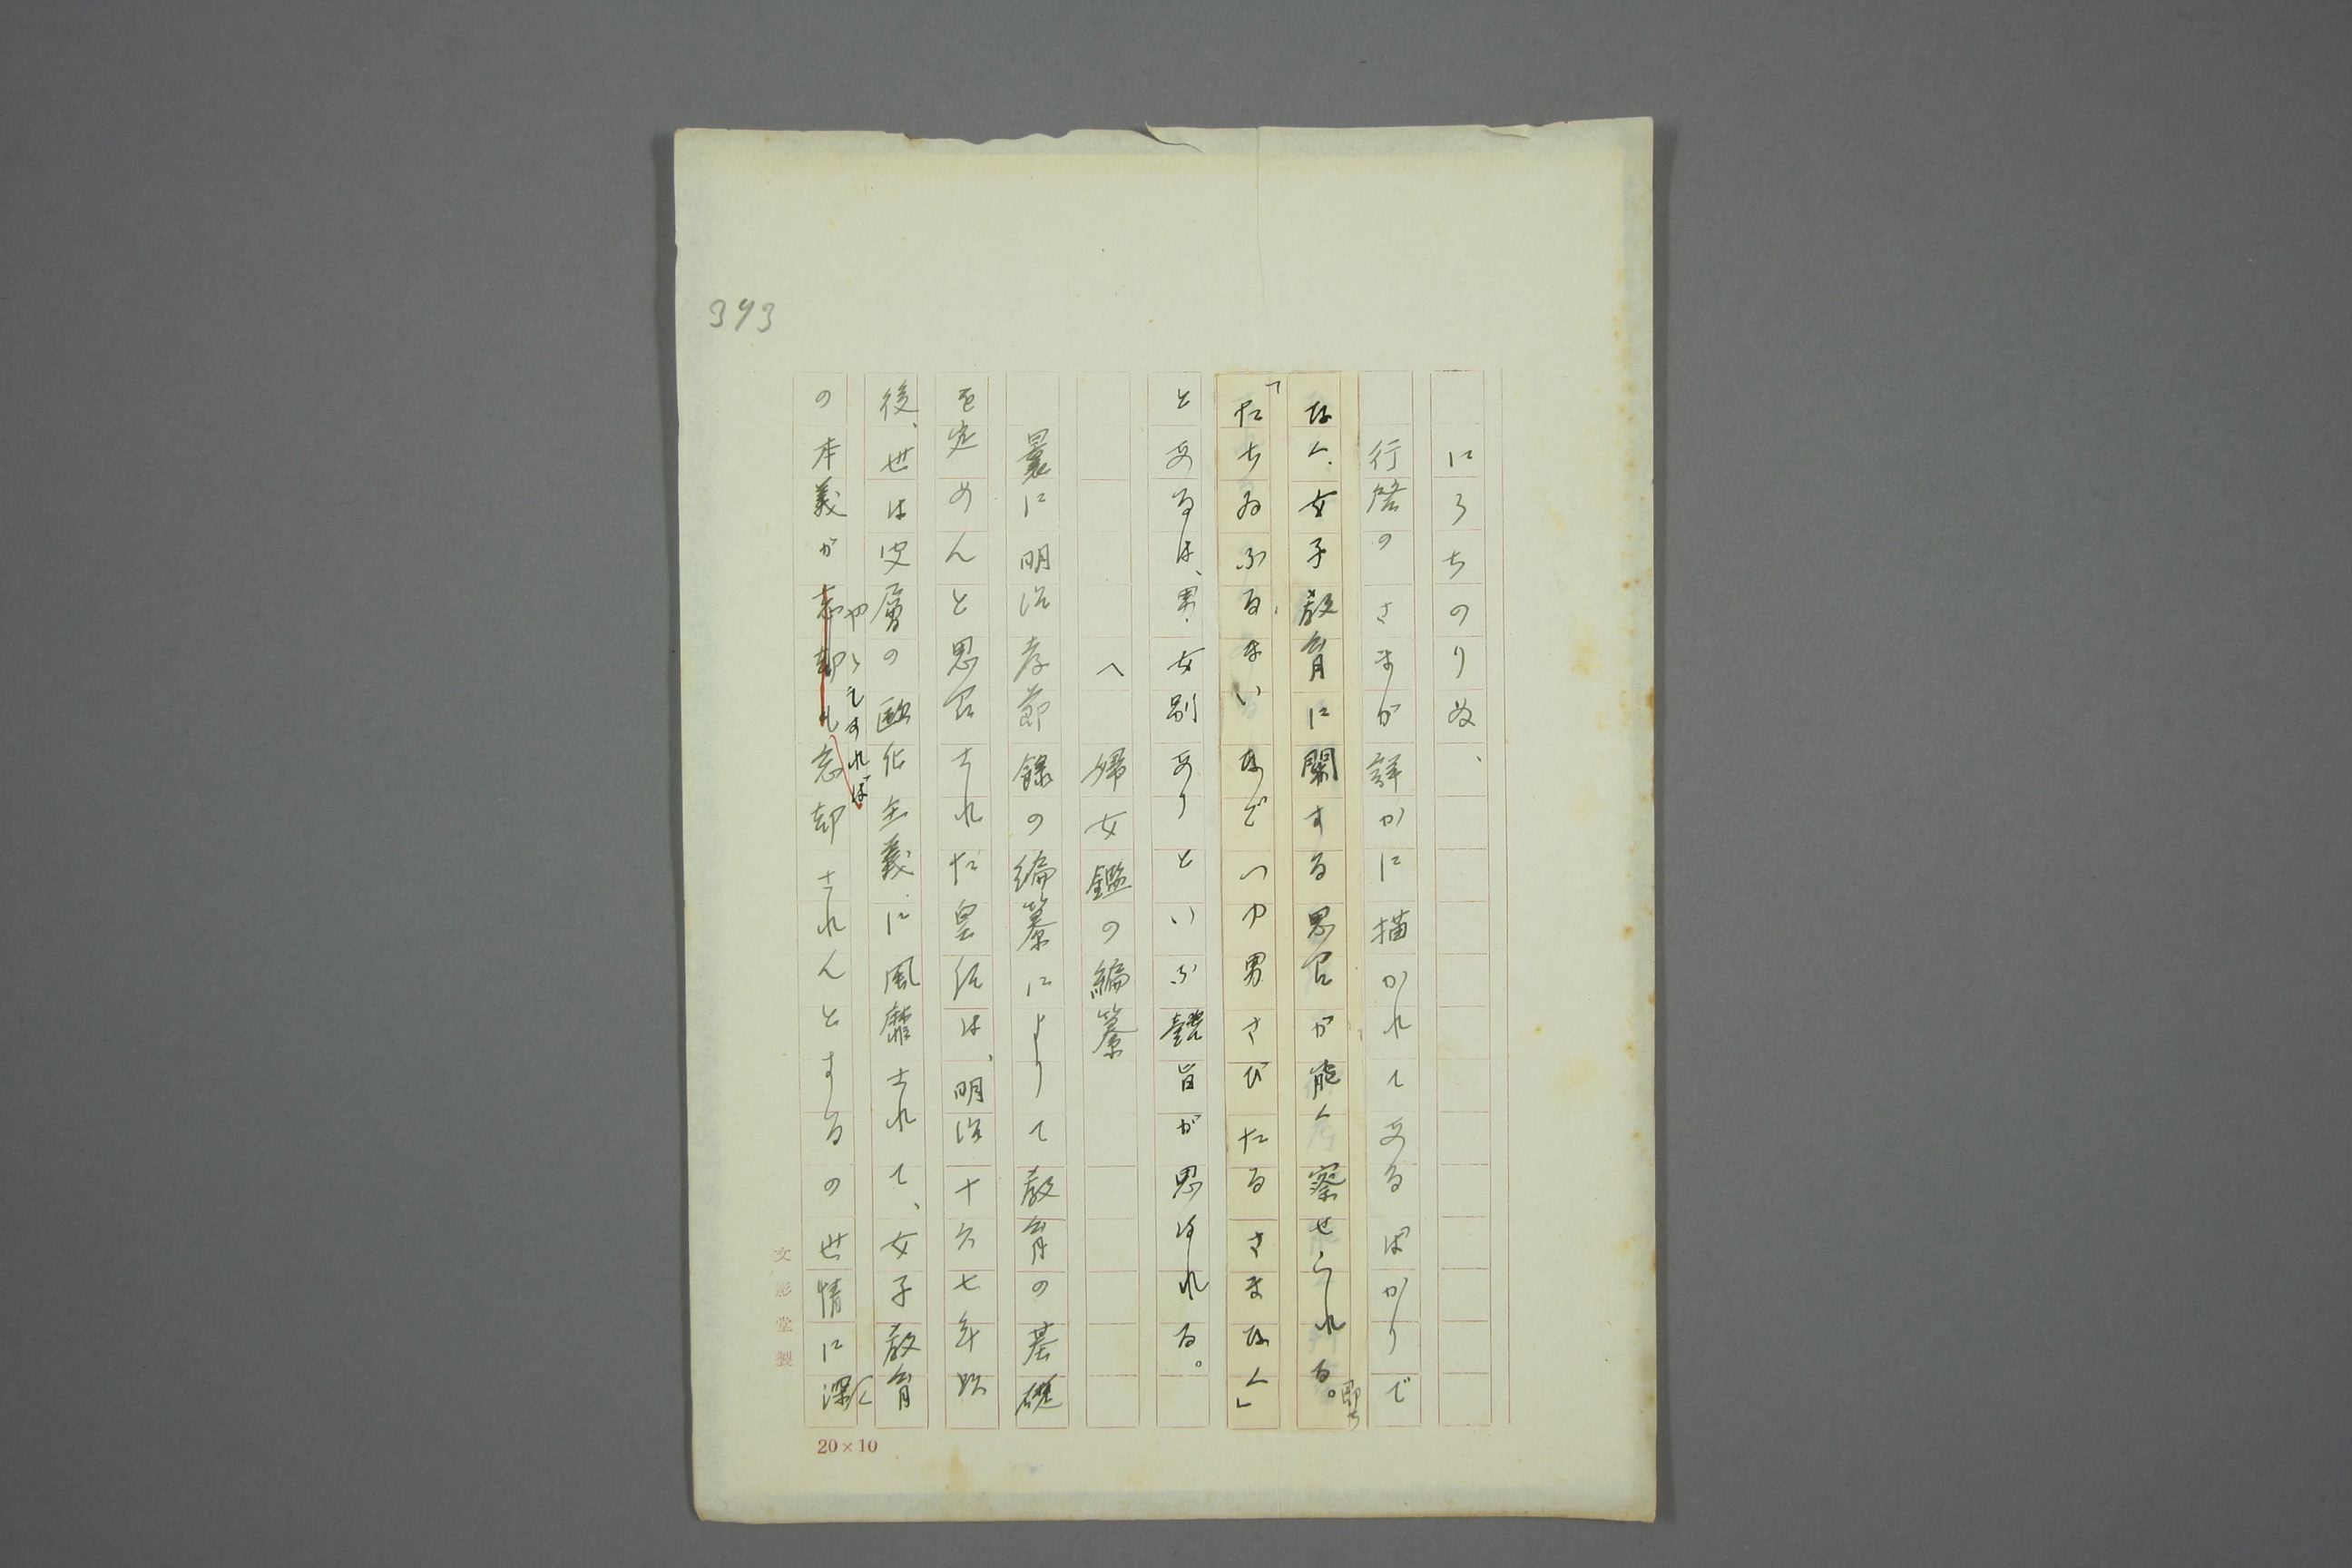 にうちのりぬ、
行啓のさまが詳かに描かれてあるばかりで
なく、女子教育に関する思召が能く察せられる。即ち
「たちゐふるまいなどつゆ男さびたるさまなく」
とあるは、男・女別ありといふ懿旨が思はれる。
へ 婦女鑑の編纂
曩に明治孝節録の編纂によりて教育の基礎
を定めんと思召された皇后は、明治十六七年頃
後、世は皮層の欧化主義に風靡されて、女子教育
の本義が忘却されんとするの世情に深く
やゝもすれば
393
文影堂製
20×10